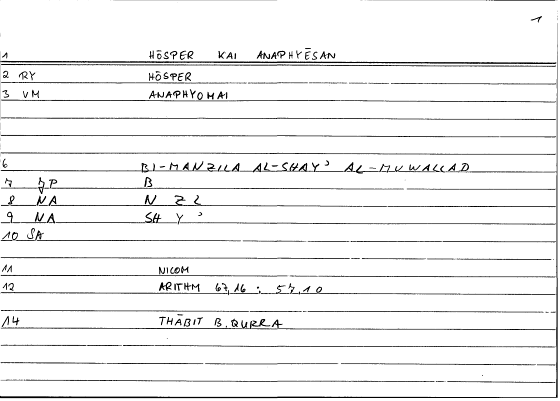 1
1 HŌSPER KAI ANAPHYĒSAN
2 RY HŌSPER
3 VM ANAPHYOMAI
6 BI-MANZILA AL-SHAYʾ AL-MUWALLAD
7 JP B
8 NA N Z L
9 NA SH Y ʾ
10 SA
11 NICOM
12 ARITHM 67,16 : 57,10
14 THĀBIT B. QURRA